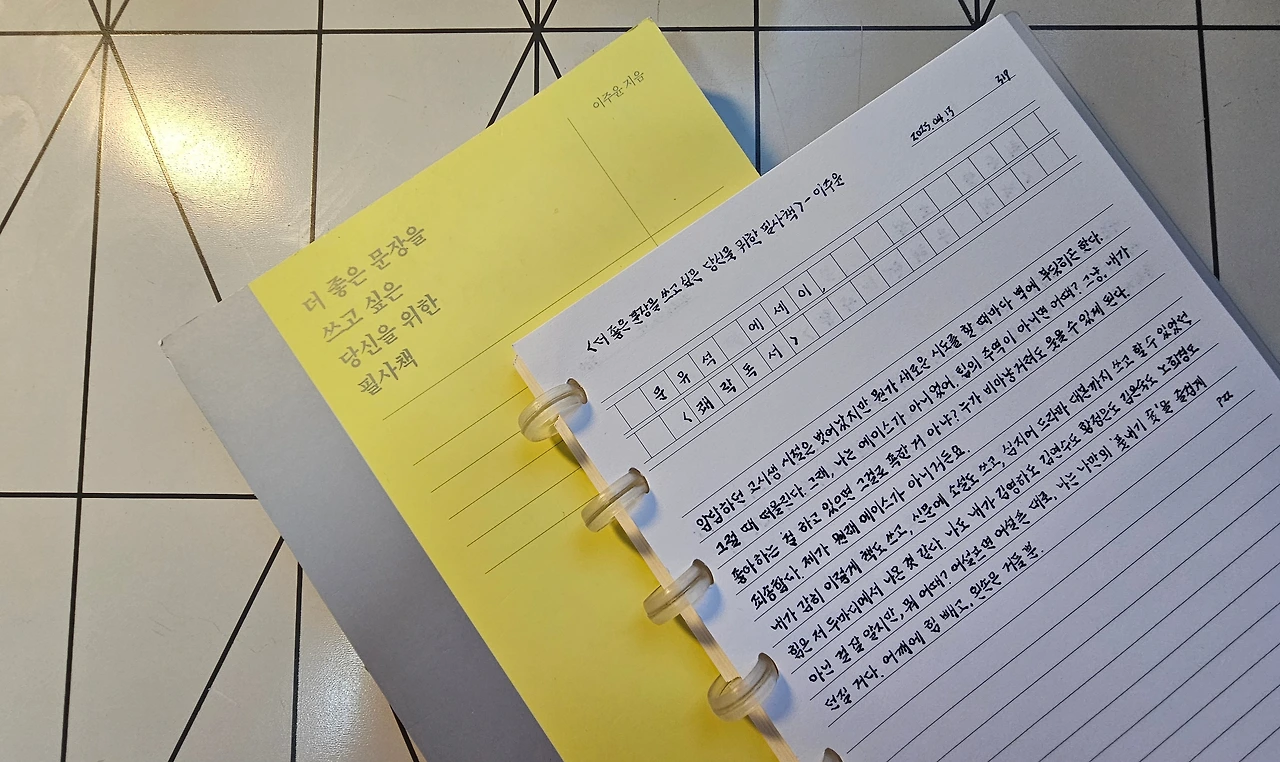 이주윤 지음
더 좋은 문장을
쓰고 싶은
당신을 위한
필사책
319
2025.04.13
<더 좋은 문장을 쓰고 싶은 당신을 위한 필사책> - 이주윤
문유석 에세이,
<쾌락독서>
암담하던 고시생 시절은 벗어났지만 뭔가 새로운 시도를 할 때마다 벽에 부딪히곤 한다.
그럴 때 떠올린다. 그래, 나는 에이스가 아니었어. 팀의 주역이 아니면 어때? 그냥, 내가
좋아하는 걸 하고 있으면 그걸로 족한 거 아냐? 누가 비아냥거려도 웃을 수 있게 된다.
죄송합니다. 제가 원래 에이스가 아니거든요.
내가 감히 이렇게 책도 쓰고, 신문에 소설도 쓰고, 심지어 드라마 대본까지 쓰고 할 수 있었던
힘은 저 두마디에서 나온 것 같다. 나도 내가 김영하도 김연수도 황정은도 김은숙도 노희경도
아닌 걸 잘 알지만, 뭐 어때? 어설프면 어설픈 대로, 나는 나만의 '풋내기 슛'을 즐겁게
던질 거다. 어깨에 힘 빼고. 왼손은 거들 뿐.
P22